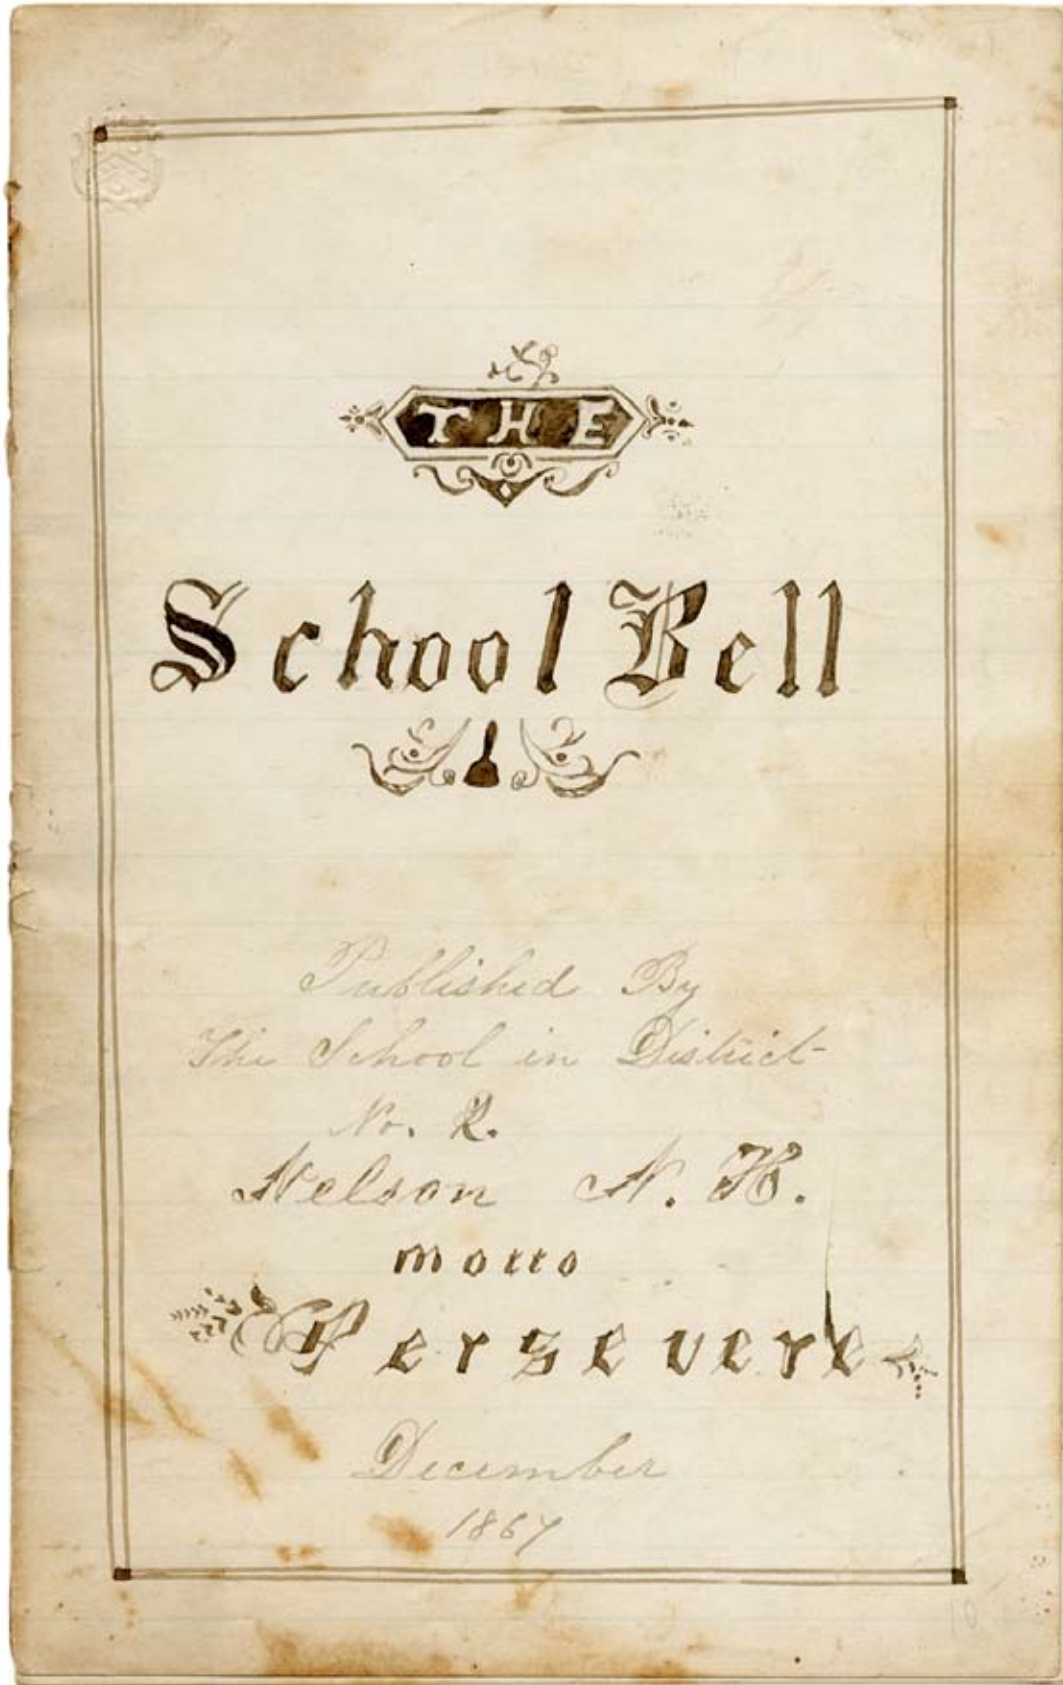 THE
School Bell
Published By
The School in District
No. 2.
Nelson N. H.
motto
Persevere
December
1867